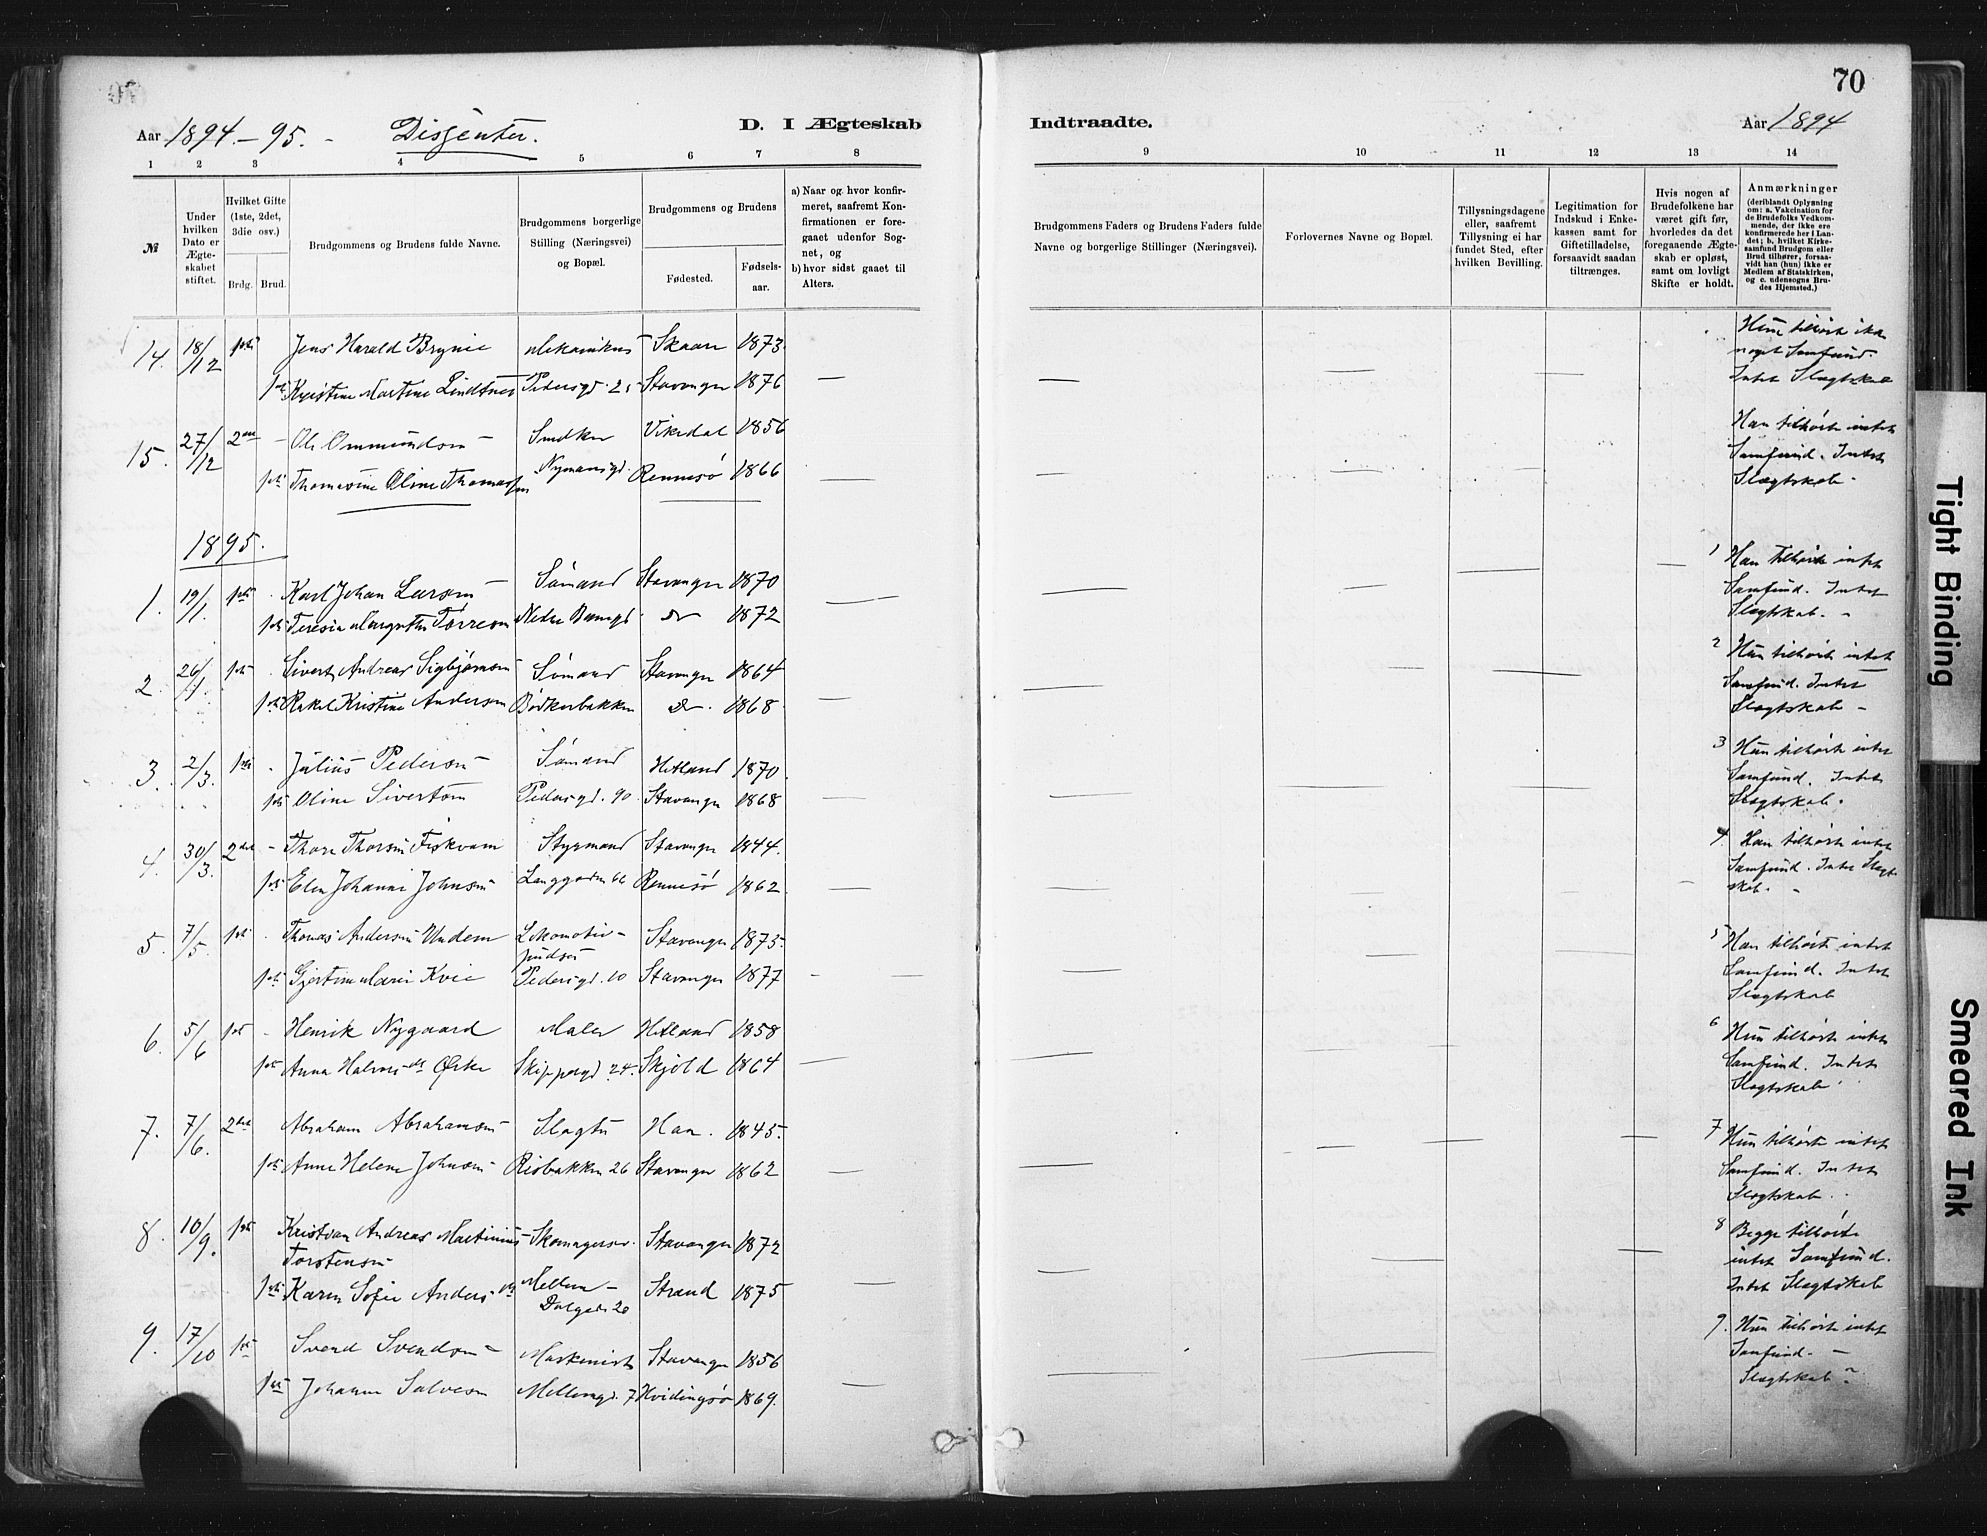 70
Aar 1894.-95. - Dissenter. D. I Ægteskab
Indtraadte. Aar 1894
1 2 3 4 5 6 7 8
9 10 11 12 13 14
№
Under hvilken Dato er Ægteskabet stiftet.
Hvilket Gifte (1ste, 2det, 3die osv.)
Brdg. Brud.
Brudgommens og Brudens fulde Navne.
Brudgommens borgerlige Stilling (Næringsvei) og Bopæl.
Brudgommens og Brudens
Fødested.
Fødselsaar.
a) Naar og hvor konfirmeret, saafremt Konfirmationen er foregaaet udenfor Sognet, og
b) hvor sidst gaaet til Alters.
Brudgommens Faders og Brudens Faders fulde Navne og borgerlige Stillinger (Næringsvei).
Forlovernes Navne og Bopæl.
Tillysningsdagene eller, saafremt Tillysning ei har fundet Sted, efter hvilken Bevilling.
Legitimation for Indskud i Enkekassen samt for Giftetilladelse, forsaavidt saadan tiltrænges.
Hvis nogen af Brudefolkene har været gift før, hvorledes da det foregaaende Ægteskab er opløst, samt om lovligt Skifte er holdt.
Anmærkninger
(deriblandt Oplysning om: a. Vakcination for de Brudefolks Vedkommende, der ikke ere konfirmerede her i Landet; b. hvilket Kirkesamfund Brudgom eller Brud tilhører, forsaavidt han (hun) ikke er Medlem af Statskirken, og c. udensogns Brudes Hjemsted.)
14. 18/12 1ste Jens Harald Brynie Mekanikus Skaare 1873. Hun tilhørte ikke
noget Samfund.
1ste Kristine Martine Lindtner Pedersgd. 25 Stavanger 1876 — Intet Slægtskab
15. 27/12 2den - Ole Ommundsen Snedker Vikedal 1856 Han tilhørte intet
Samfund. Intet
1ste Thomasine Oline Thomassen Nymansgd. Rennesø 1866 — Slægtskab.
1895.
1. 19/1. 1ste Karl Johan Larsen Sømand Stavanger 1870 — 1 Han tilhørte intet
Samfund. Intet
1ste Teresia Margrethe Torresen Nedre Banegd. do 1872 Slægtskab. -
2. 26/1. 1ste Sivert Andreas Sigbjørnsen Sømand Stavanger 1864 2 Hun tilhørte intet
Samfund. Intet
1ste Rakel Kristine Andersen Bødkerbakken do. 1868. — Slægtskab -
3. 2/3. 1ste Julius Pedersen Sømand Hetland 1870. 3 Hun tilhørte intet
Samfund. Intet
1ste Oline Sivertsen Pedersgd. 90 Stavanger 1868 — Slægtskab.
4. 30/3. 2det - Thore Thorsen Fiskvam Styrmand Stavanger 1844. 4. Han tilhørte intet
Samfund. Intet Slægt-
1ste Elen Johanne Johnsen Langgaden 66 Rennesø 1862. — skab. -
5. 7/5. 1ste Thomas Andersen Undem Lokomotiv-
pudser Stavanger 1873. 5 Han tilhørte intet
Samfund. Intet
1ste Gjertine Marie Kvie Pedersgd. 10 Stavanger 1877 — Slægtskab
6. 5/6 1ste Henrik Nygaard Maler Hetland 1858 6 Hun tilhørte intet
Samfund. Intet
1ste Anna Halvorsdt Ørke Skippergd 24. Skjold 1864 — Slægtskab.
7. 7/6. 2det Abraham Abrahamsen Slagter Haa. 1845. 7 Hun tilhørte intet
Samfund. Intet
1ste Anne Helene Johnsen Risbakken 26 Stavanger 1862 — Slægtskab.
8. 10/9. 1ste Kristian Andreas Martinius
Torstensen Skomagersv. Stavanger 1872 8 Begge tilhørte
intet Samfund.
1ste Karen Sofie Andersdt Mellem-
Dalgade 20 Strand 1875 — Intet Slægtskab
9. 17/10 1ste Svend Svendsen Maskinist Stavanger 1856 9. Hun tilhørte intet
Samfund. -
1ste Johanne Salvesen Mellemgd. 7 Hvidingsø 1869. — Slægtskab?
Tight Binding
Smeared Ink